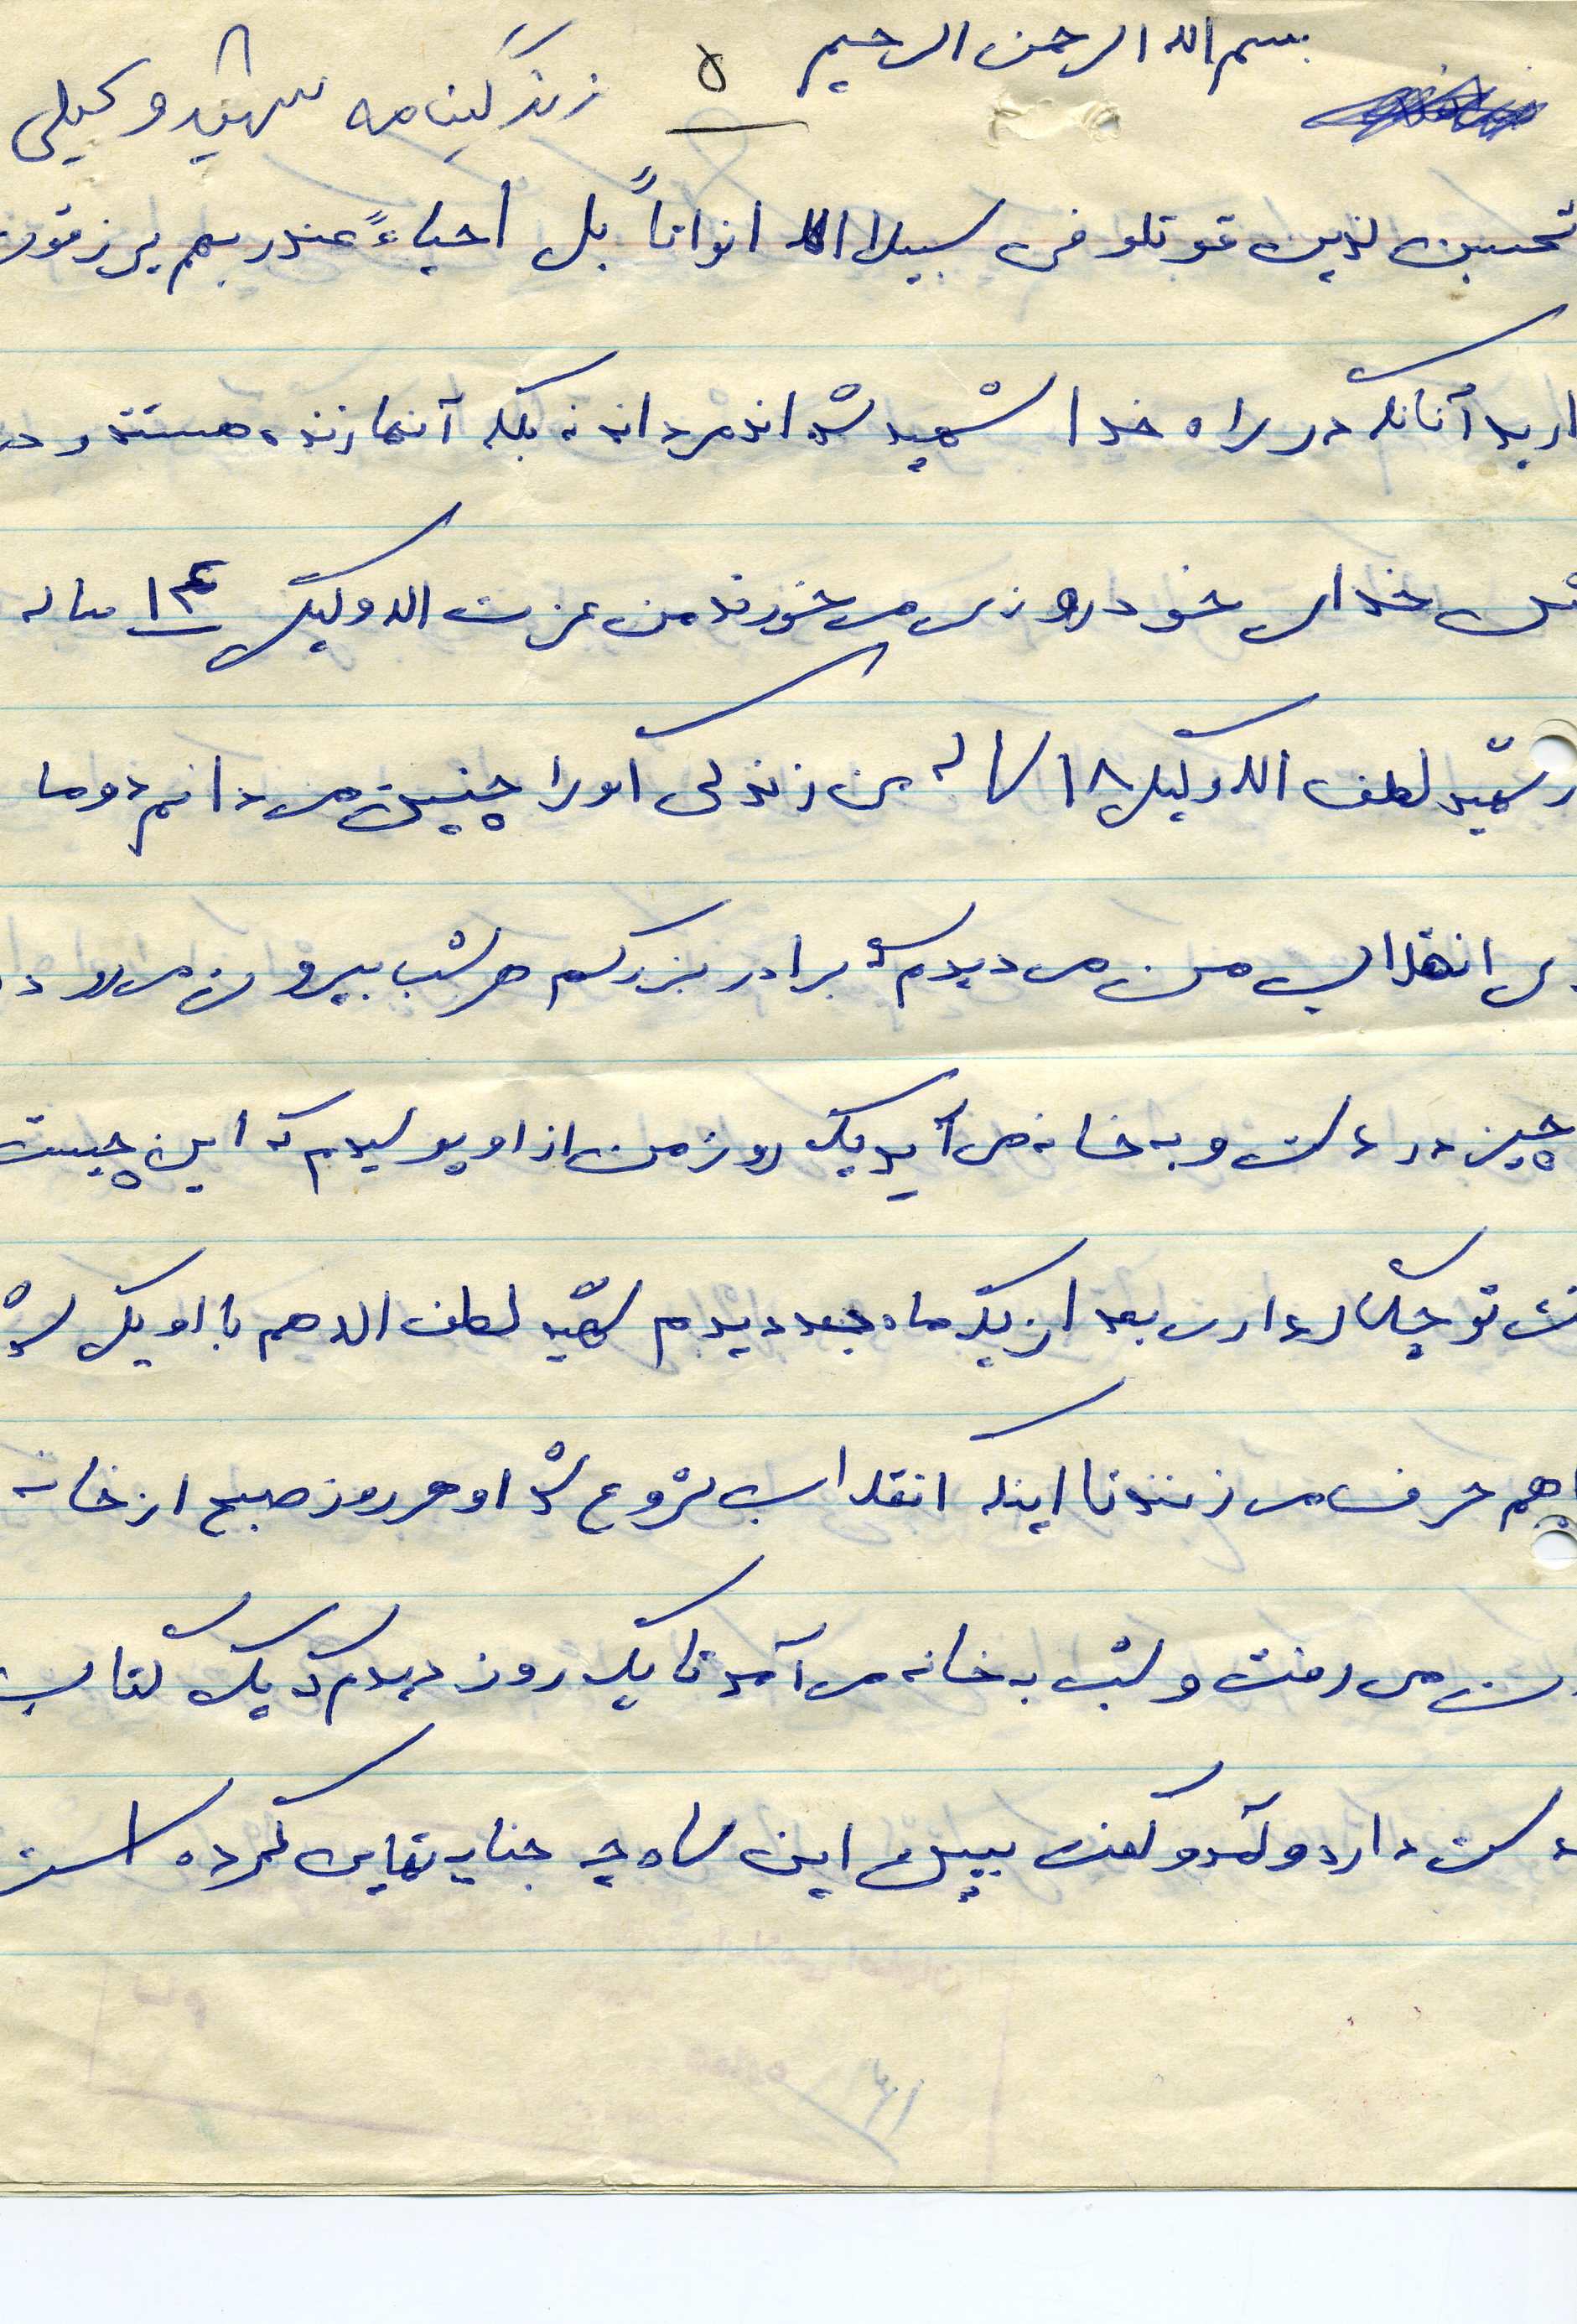 بسم الله الرحمن الرحیم
۵ زندگینامه شهید وکیلی
تحسبن لذین قوتلو فی سبیلا الله انواتاً بل احیاءً عندربهم یرزقون
ارید آنانکه در راه خدا شهید شده اند مرده اند نه بلکه آنها زنده هستند و در
خدای خود روزی می خورند من عزت الله وکیلی ۱۴ ساله
شهید لطف الله وکیلی ۱۸ ساله من زندگی او را چنین می دانم دوما
ی انقلاب من می دیدم که برادر بزرگم هر شب بیرون می رود
چیز در دست و به خانه می آید یک روز من از او پرسیدم که این چیست
ت تو چکار داری بعد از یک ماه بعد دیدم شهید لطف الله هم با او یکی شد
با هم حرف می زنند تا اینکه انقلاب شروع شد او هر روز صبح از خانه
ن می رفت و شب به خانه می آمد تا یک روز دیدم که یک کتاب
دست دارد و آمد و گفت ببین این شاه چه جنایتهایی کرده است